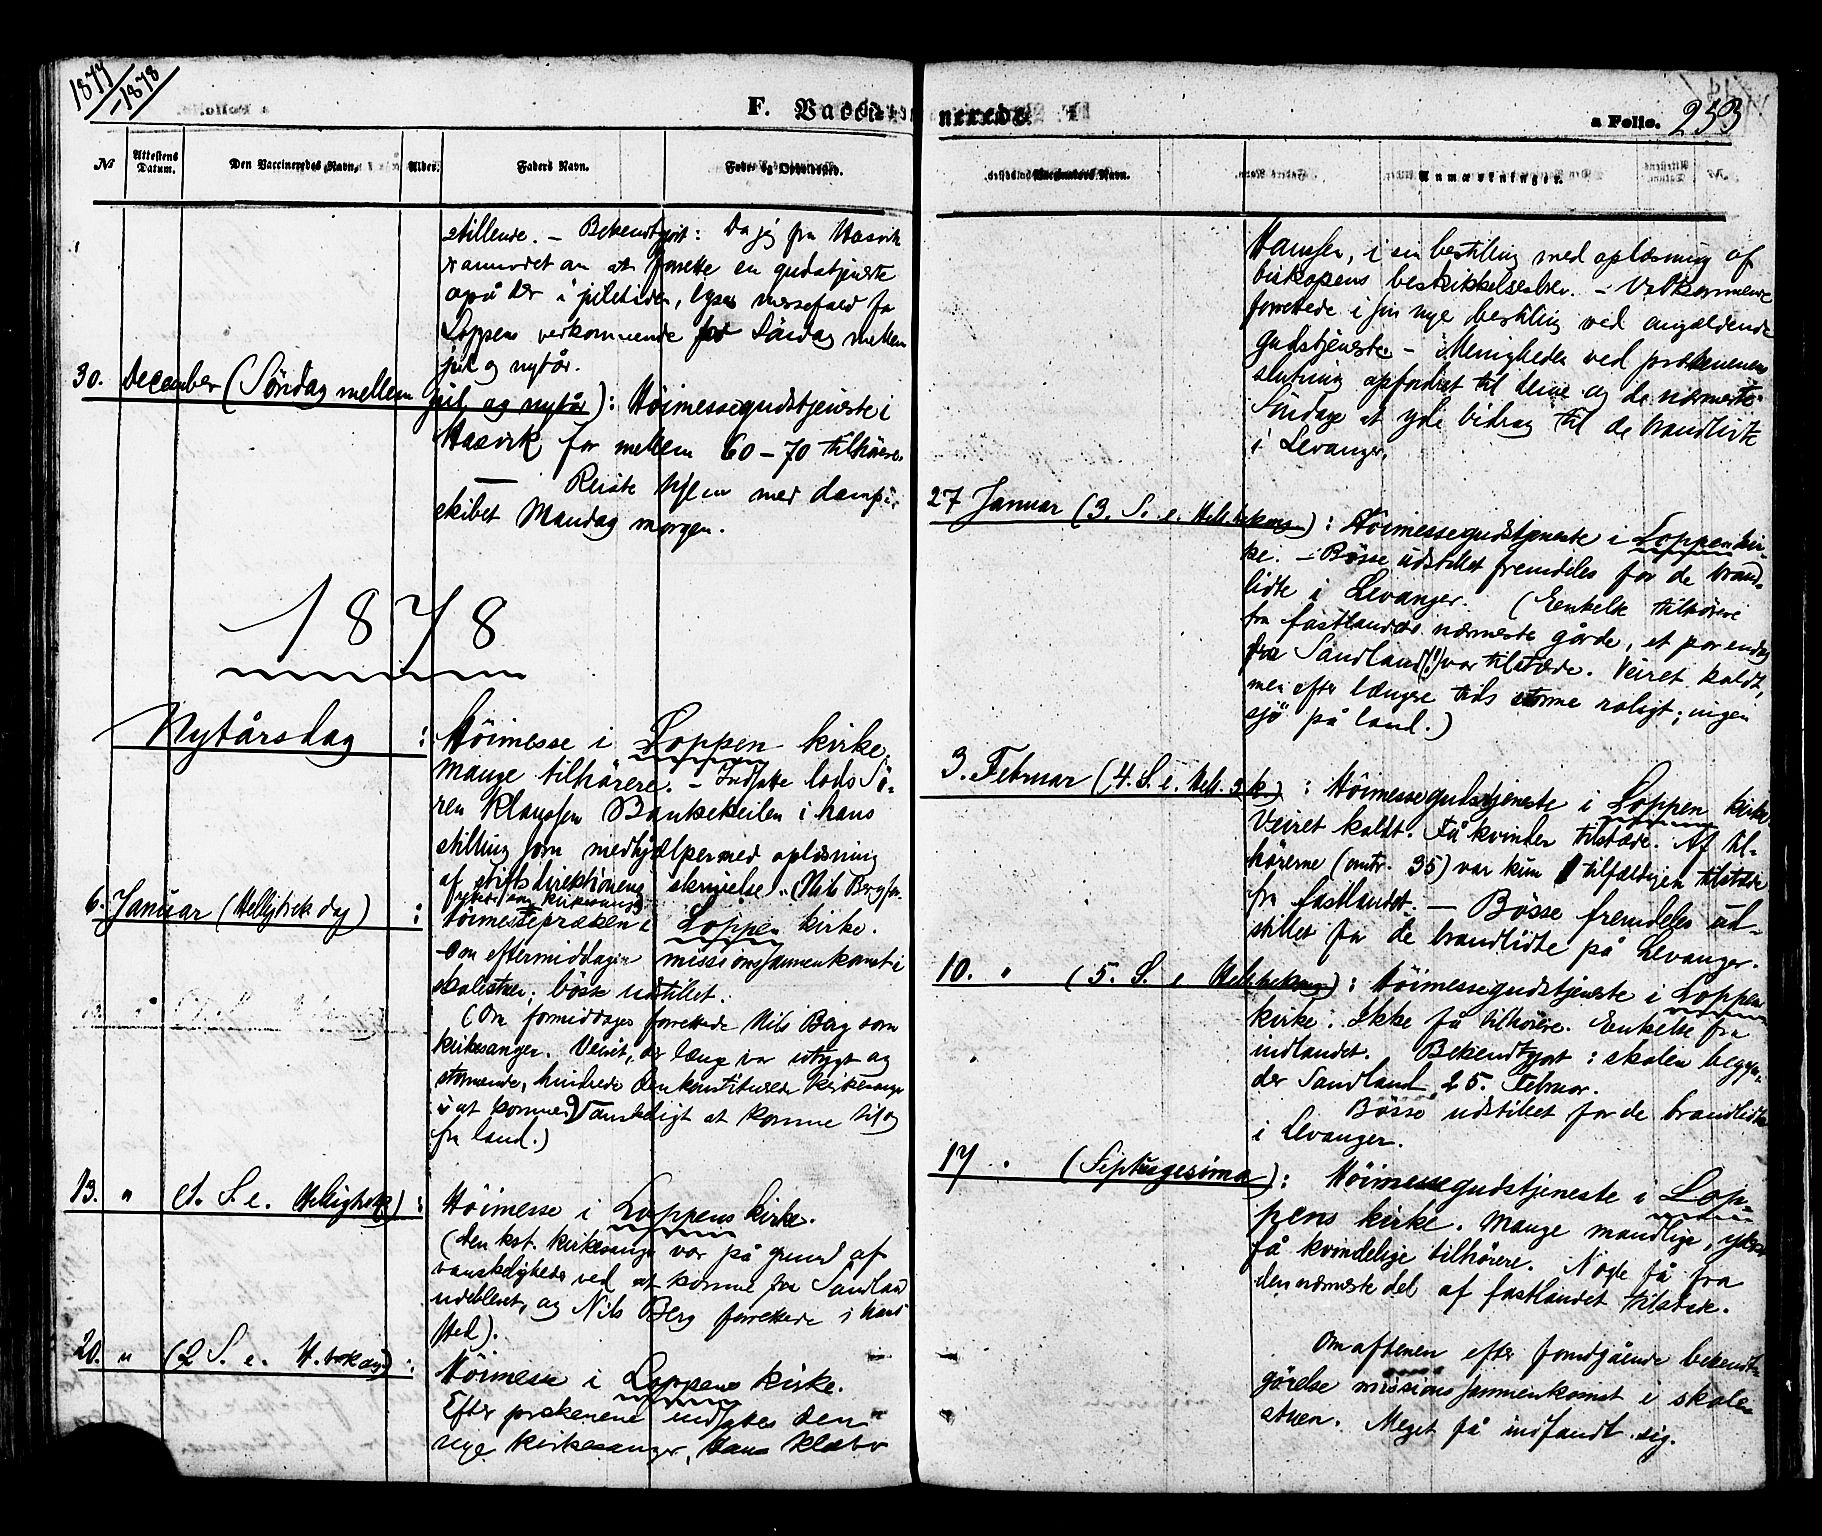 1877
-1878
F. Vaccinerede
a Folio. 253
No
Attestens Datum.
Den Vaccineredes Navn.
Alder.
Faders Navn.
Anmærkninger.
stillende. – Bekendtgjort: Da jeg fra Hasvik
er anmodet om at forrette en gudstjeneste
også der i juletiden, lyses messefald for
Loppens vedkommende for Söndag mellem
jul og nytår.
30. December (Söndag mellem jul og nytår): Höimessegudstjeneste i
Hasvik for mellem 60–70 tilhörere.
– Reiste hjem med damp-
skibet Mandag morgen.
1878
Nytårsdag : Höimesse i Loppen kirke
mange tilhörere. – Indsatte lods Sö-
ren Klaussen Bankekeilen i hans
stilling som medhjælper med oplæsning
af stiftsdirektionens skrivelse. (Nils Berg
kirkesanger)
6. Januar (Helligtrek dag) : Höimessepræken i Loppen kirke.
Om eftermiddagen missionssammenkomst i
skolestuen; bösse udstillet.
(Om formiddagen forrettede Nils Berg som
kirkesanger. Veiret, der længe var stygt og
stormende, hindrede den konstituerede kirkesanger
i at komme. Vanskeligt at komme til og
fra land.)
13. " (1. S. e. Helligtrek) : Höimesse i Loppens kirke.
(Den kst. kirkesanger var på grund af
vanskeligheder ved at komme fra Sandland
udeblevet, og Nils Berg forrettede i hans
sted).
20. " (2 S. e. H. trek dag) : Höimesse i Loppens kirke.
Efter prækenen indsattes den
nye kirkesanger, Hans Klæbo
Hanssen, i sin bestilling med oplæsning af
biskopens beskikkelsesbrev. – Vedkommende
forrettede i sin nye bestilling ved angældende
gudstjeneste – Menigheden ved prækenens
slutning opfordret til denne og de nærmeste
Söndage at yde bidrag til de brandlidte
i Levanger.
27 Januar (3. S. e. Hell. trekong) : Höimessegudstjeneste i Loppen kir-
ke. – Bösse udstillet fremdeles for de brand-
lidte i Levanger. (Enkelte tilhörere
fra fastlandets nærmeste gårde, et par endog
fra Sandland(!) var tilstæde. Veiret koldt,
men efter længere tids storme roligt; ingen
sjö på land.)
3. Februar (4. S. e. Hell. 3 k) : Höimessegudstjeneste i Loppen kirke.
Veiret koldt. Få kvinder tilstæde. Af til-
hörerne (omtr. 35) var kun 1 tilfældigen tilstæde
fra fastlandet. – Bösse fremdeles ud-
stillet for de brandlidte på Levanger.
10. " (5. S. e Hell. trekong) : Höimessegudstjeneste i Loppen
kirke. Ikke få tilhörere. Enkelte fra
indlandet. Bekendtgjort: skolen begyn-
der Sandland 25. Februar.
Bösse udstillet for de brandlidte
i Levanger.
17 " (Septuagesima) : Höimessegudstjeneste i Lop-
pens kirke. Mange mandlige,
få kvindelige tilhörere. Nogle få fra
den nærmeste del af fastlandet tilstæde.
Om aftenen efter foregående bekendt-
görelse missionssammenkomst i skole-
stuen. Meget få indfandt sig.